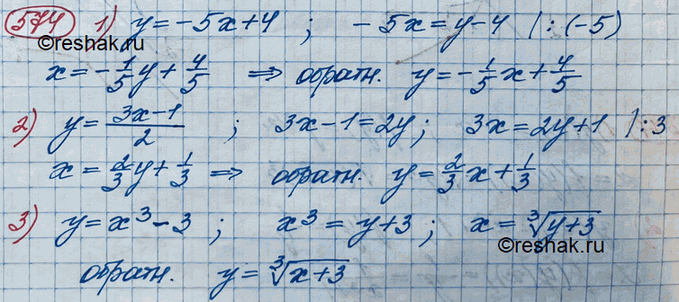 574 1) y = -5x+4 ; -5x = y-4 | : (-5)
©reshak.ru
x = -1/5 y + 4/5 ⇒ обратн. y = -1/5 x + 4/5
2) y = (3x-1)/2 ; 3x-1 = 2y ; 3x = 2y+1 | : 3
x = 2/3 y + 1/3 ⇒ обратн. y = 2/3 x + 1/3
3) y = x³ - 3 ; x³ = y+3 ; x = ∛(y+3)
©reshak.ru
обратн. y = ∛(x+3)